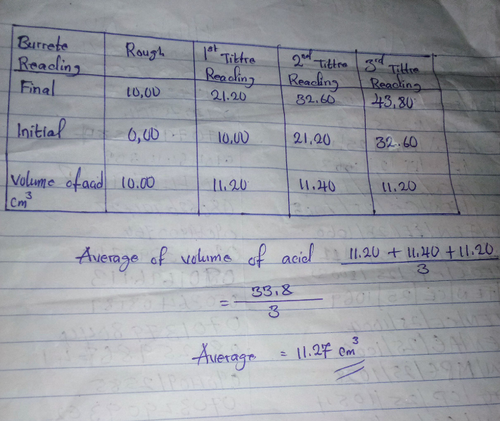 Burrete Reading | Rough | 1st Tittre Reading | 2nd Tittre Reading | 3rd Tittre Reading
Final | 10,00 | 21.20 | 32.60 | 43.80
Initial | 0,00 | 10,00 | 21,20 | 32.60
Volume of acid cm³ | 10.00 | 11.20 | 11.40 | 11.20
Average of volume of acid 11.20 + 11.40 + 11.20
3
= 33.8
3
Average = 11.27 cm³